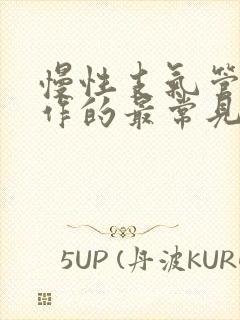 慢性支气管
作的最常见
5UP (丹波KUR